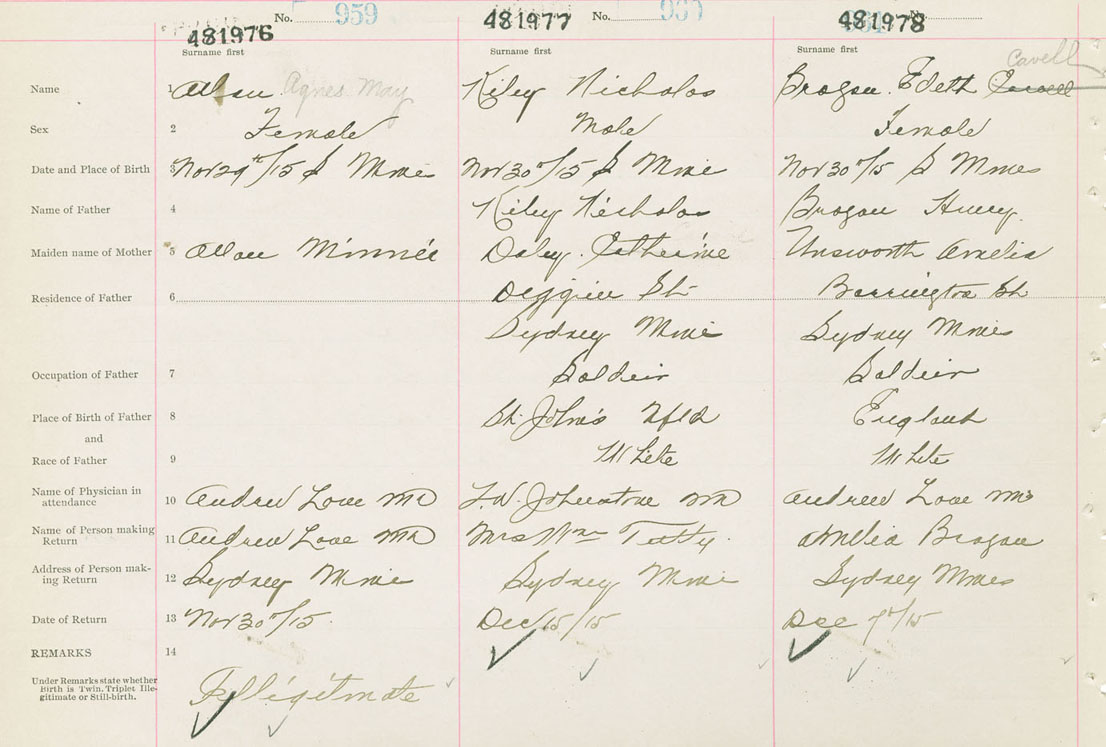 No. 959 No. No.
481976 481977 481978
Surname first Surname first Surname first
Cavell
Name 1 Allan Agnes May Kiley Nicholas Brogan Edeth Cavell
Sex 2 Female Male Female
Date and Place of Birth 3 Nov 29th/15 S Mine Nov 30th/15 S Mine Nov 30th/15 S Mines
Name of Father 4 Kiley Nicholas Brogan Henry
Maiden name of Mother 5 Allan Minnie Daley Catherine Unsworth Amelia
Residence of Father 6 St Barrington St
Sydney Mine Sydney Mines
Occupation of Father 7 Soldeir Soldeir
Place of Birth of Father 8 St. John's Nfld England
and
Race of Father 9 White White
Name of Physician in
attendance 10 Andrew Love MD F.W. Johnstone MD Andrew Love MD
Name of Person making
Return 11 Andrew Love MD Mrs Wm Tutty. Amelia Brogan
Address of Person mak-
ing Return 12 Sydney Mine Sydney Mine Sydney Mines
Date of Return 13 Nov 30th/15. Dec 15/15 Dec 7th/15
REMARKS 14
Under Remarks state whether
Birth is Twin, Triplet Ille-
gitimate or Still-birth.
Illegitimate